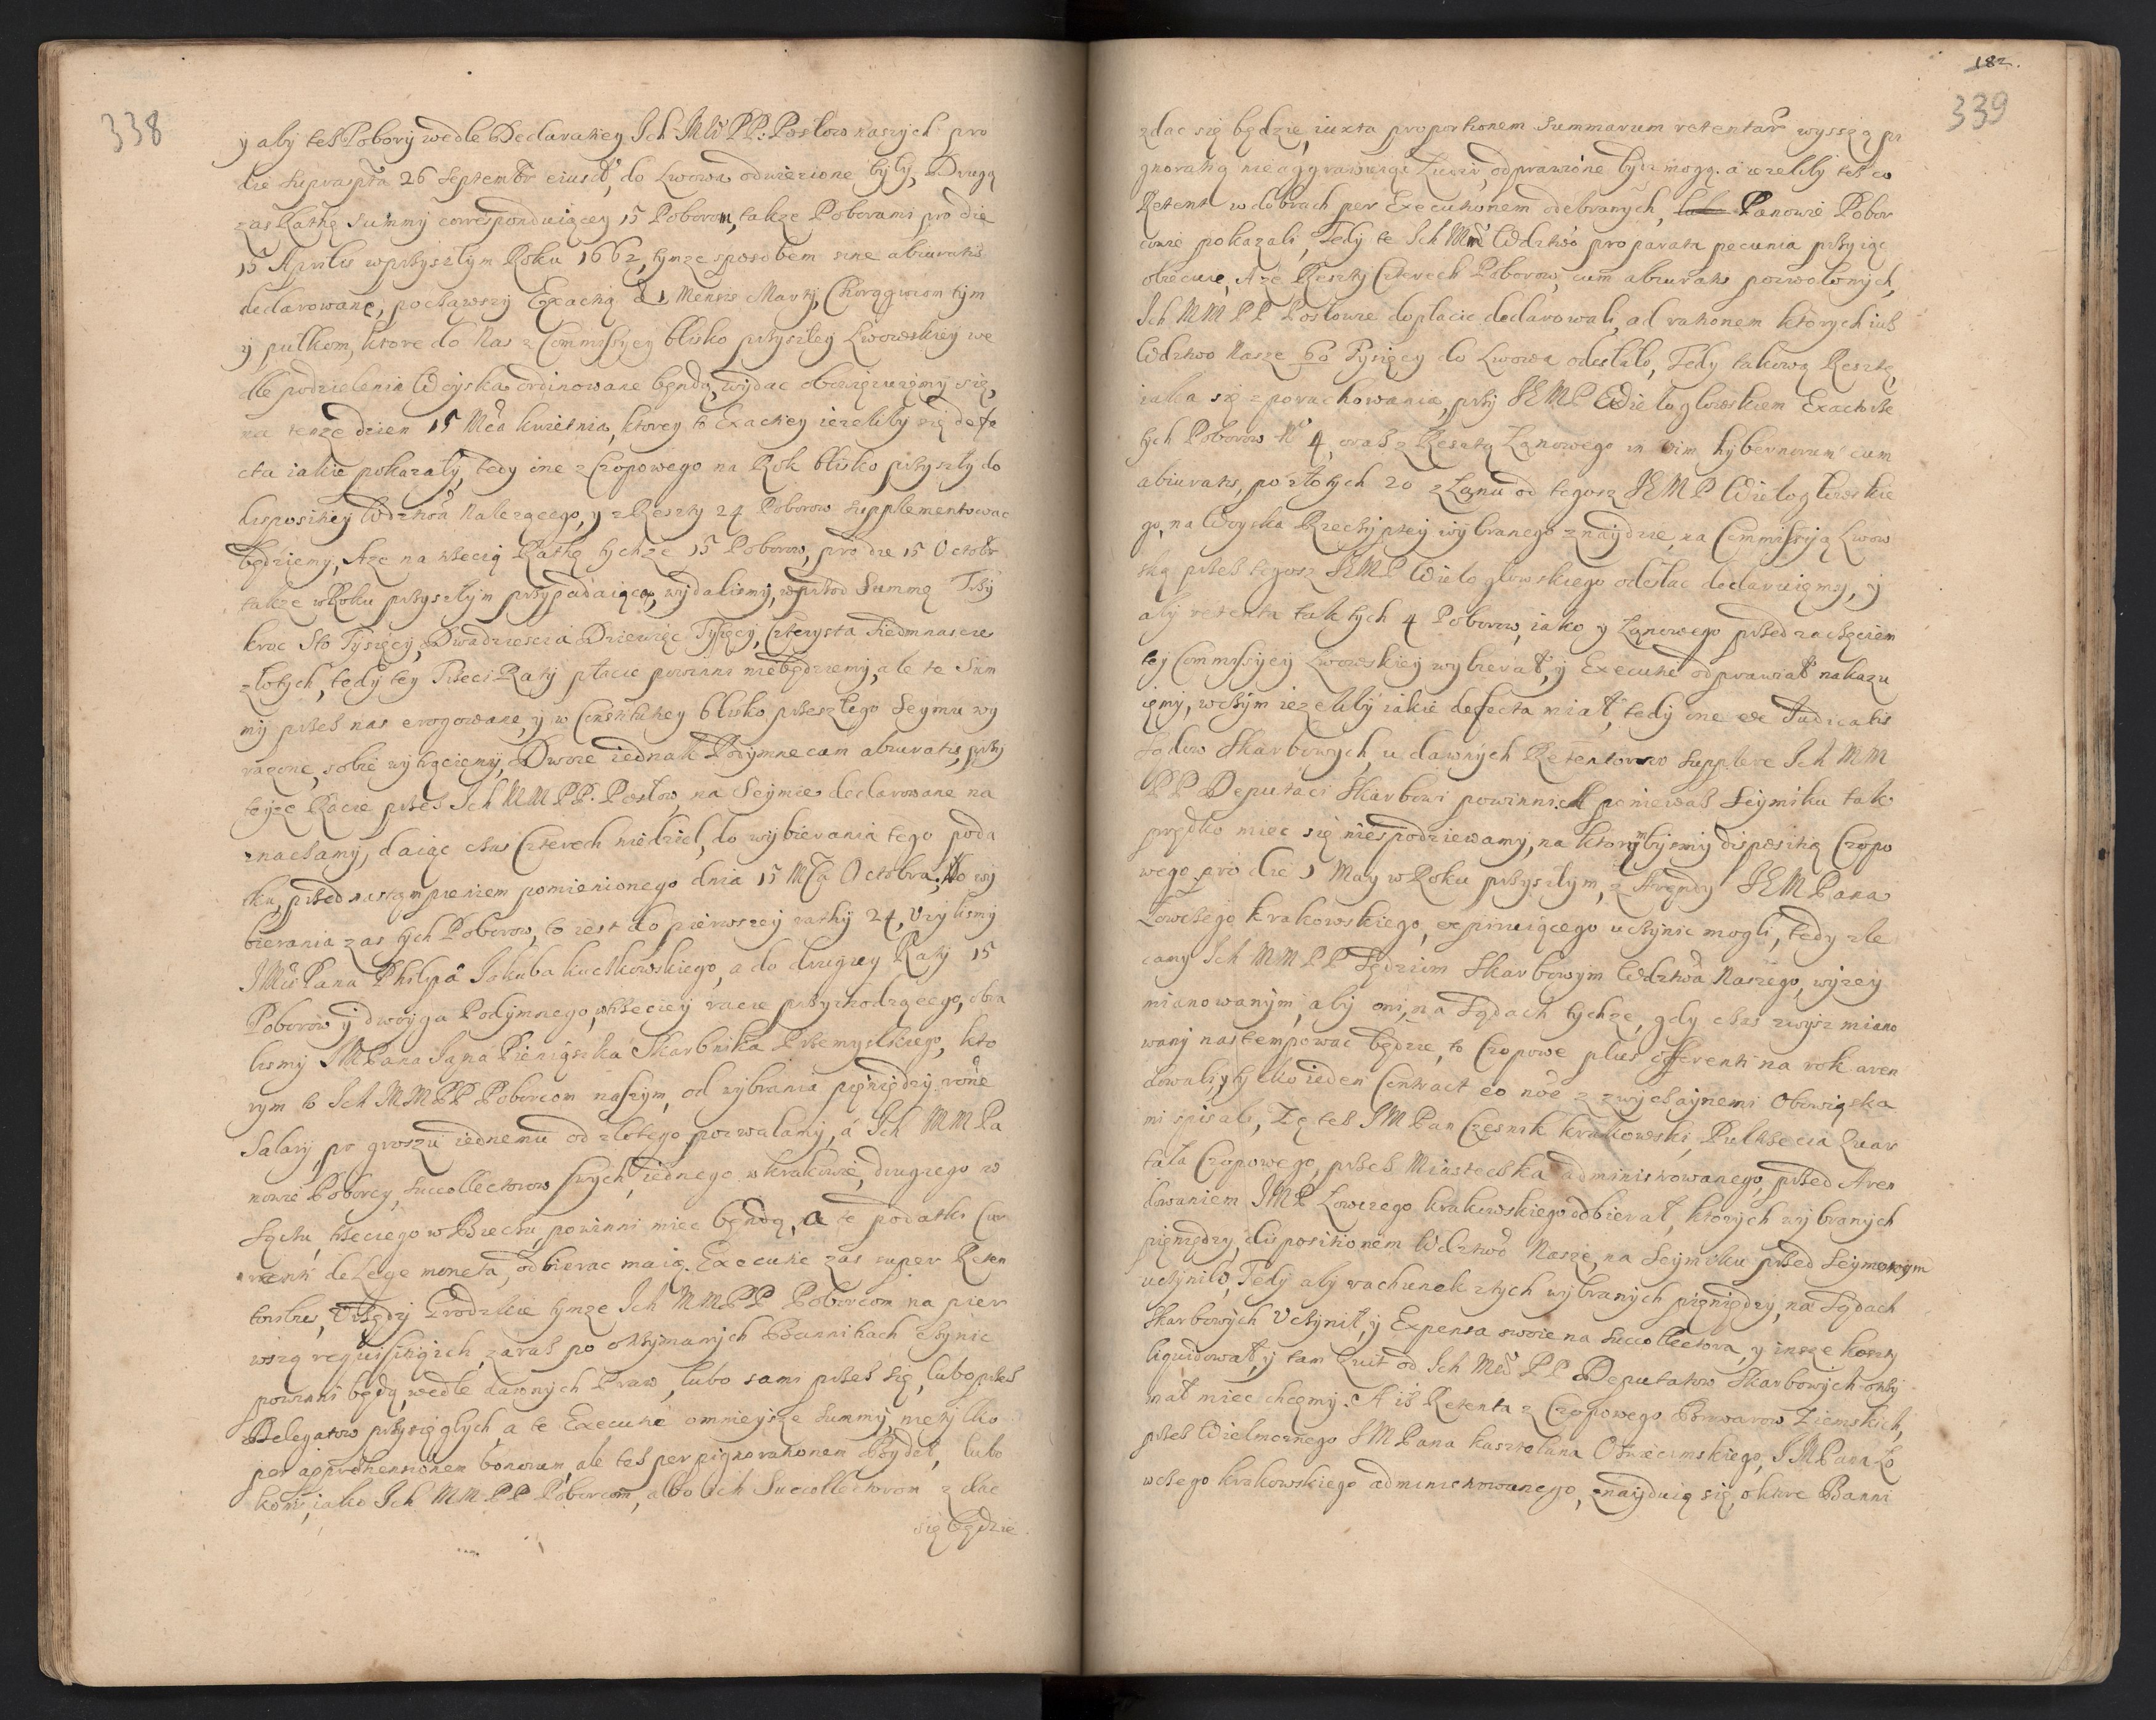 338
y aby tesz Pobory wedle Declaratiey Ich Mciow PP: Posłow naszych pro
die supraspta 26 Septembr eiusd, do Lwowa odwiezione były, Drugą
zas Rathę Summy corresponduiącey 15 Poborom, takze Poborami pro die
15 Aprilis w przyszłym Roku 1662, tymze sposobem sine abiuratis
declarowane, począwszy Exactią d 1 Mensis Martij, Chorągwiom tym
y pułkom, ktore do Nas z Commissyey blisko przyszłey Lwowskiey we
dle podzielenia Woyska ordinowane bęndą, wydac obowięzuiemy się,
na tenze dzien 15 Mca kwietnia, ktorey to Exactiey iezeliby się defe
cta iakie pokazały, tedy one z Czopowego na Rok blisko przyszły do
dispositiey Wdztwa Nalezącego, y z Reszty 24 Poborow supplementowac
będziemy, Aze na trzecią Rathę tychze 15 Poborow, pro die 15 Octobr
takze w Roku przyszłym przypadaiącą, wydalismy, wprzod Summę Trzy
kroc Sto Tysięcy, Dwadziescia Dziewięc Tysięcy, Czterysta Siedmnascie
złotych, tedy tey Trzeci Raty płacic powinni niebędziemy, ale te Sum
my przez nas erogowane, y w Constitutiey blisko przeszłego Seymu wy
razone, sobie wytrącięmy, Dwoie iednak Podymne cum abiuratis, przy
teyze Racie przez Ich MM PP. Posłow na Seymie declarowane na
znaczamy, daiąc czas Czterech niedziel, do wybierania tego poda
tku, przed nastąmpieniem pomienionego dnia 15 Mca Octobra. Do wy
bierania zas tych Poborow, to iest do pierwszey rathy 24, Uzylismy
JMci Pana Philipa Jakuba kuczkowskiego, a do drugiey Raty 15
Poborow y dwoyga Podymnego, w trzeciey racie przychodzącego, obra
lismy JMPana Jana Pieniązka Skarbnika Przemyslskiego, kto
rym to Ich MMPP Poborcom naszym, od wybrania pieniędzy rone
Salary, po groszu iednemu od złotego pozwalamy, a Ich MM Pa
nowie Poborcy, succollectorow swych, iednego w krakowie, drugiego w
Sączu, trzeciego w Bieczu, powinni miec bęndą, a te podatki cur
renti de Lege moneta, odbierac maią. Executie zas super Reten
tores, Urzędy Grodzkie tymze Ich MMPP Poborcom na pier
wszą requisitią ich, zaraz po otrzymanych Bannitiach czynic
powinni będą, wedle dawnych Praw, lubo sami przez się, lubo przez
Delegatow przysięgłych, a te Executie o mnieysze summy, nietylko
per apprehensionem bonorum, ale tez per pignorationem Bydeł, lubo
koni, iako Ich MM PP Poborcom, albo ich Succollectorom zdac
się będzie
182.
339
zdac się będzie, iuxta proportionem Summarum retentar wyszszą pi
gnoratią nie aggrawuiąc Ludzi, odprawione bydz mogą. a iezeliby tesz co
Retent w dobrach per Executionem odebranych, Panowie Pobor
cowie pokazali, Tedy te Ich Mci Wdztwo pro parata pecunia przyiąc
obiecuie, A ze Reszty Czterech Poborow, cum abiuratis pozwolonych,
Ich MM PP Posłowie dopłacic declarowali, ad rationem ktorych iusz
Wdztwo Nasze 60 Tysięcy do Lwowa odesłało, Tedy takową Resztę,
iaka się z porachowania, przy JEMP Wielogłowskiem Exactorze
tych Poborow No 4, oraz z Resztą Łanowego in vim hybernorum cum
abiuratis, po złotych 20 z Łanu od tegosz JEMP Wielogłowskie
go, na Woyska Rzeczyptey wybranego znaydzie, na Commissyą Lwow
ską przez tegosz JEMP Wielogłowskiego odesłac declaruięmy, y
aby retenta tak tych 4 Poborow, iako y Łanowego przed zaczęciem
tey Commissyey Lwowskiey wybierał, y Executie odprawiał nakazu
iemy, w czym iezeliby iakie defecta miał, tedy one ex Iudicatis
Sądow Skarbowych, u dawnych Retentorow supplere Ich MM
PP Deputaci Skarbowi powinni. A poniewasz Seymiku tak
prędko miec się niespodziewamy, na ktorymbysmy dispositią Czopo
wego pro die 1 May w Roku przyszłym, z Arędy JEMPana
Łowczego krakowskiego, expiruiącego uczynic mogli, tedy zle
camy Ich MM PP Sędziom Skarbowym Wdztwa Naszego, wyzey
mianowanym, aby oni, na Sądach tychze, gdy czas zwysz miano
wany nastempowac będzie, to Czopowe plus offerenti na rok aren
dowali, y tylko ieden Contract eo noe z zwyczaynemi Obowiąska
mi spisali, Zę tesz JMPan Czesnik krakowski, Pułtrzecia Quar
tała Czopowego, przez Miasteczka administrowanego, przed Aren
dowaniem JMP Łowczego krakowskiego odbierał, ktorych wybranych
pieniędzy, dispositionem Wdztwo Nasze, na Seymiku przed Seymowym
uczyniło, Tedy aby rachunek z tych wybranych pieniędzy, na Sądach
Skarbowych Uczynił, y Expensa swoie na Succollectora, y insze koszty
liquidował, y tam Quit od Ich Mciow PP Deputatow Skarbowych otrzy
mał miec chcęmy. A isz Retenta z Czopowego Browarow Ziemskich,
przez Wielmoznego JMPana kasztelana Oswiecimskiego, JMPana Ło
wczego krakowskiego administrowanego, znayduią się, o ktore Banni